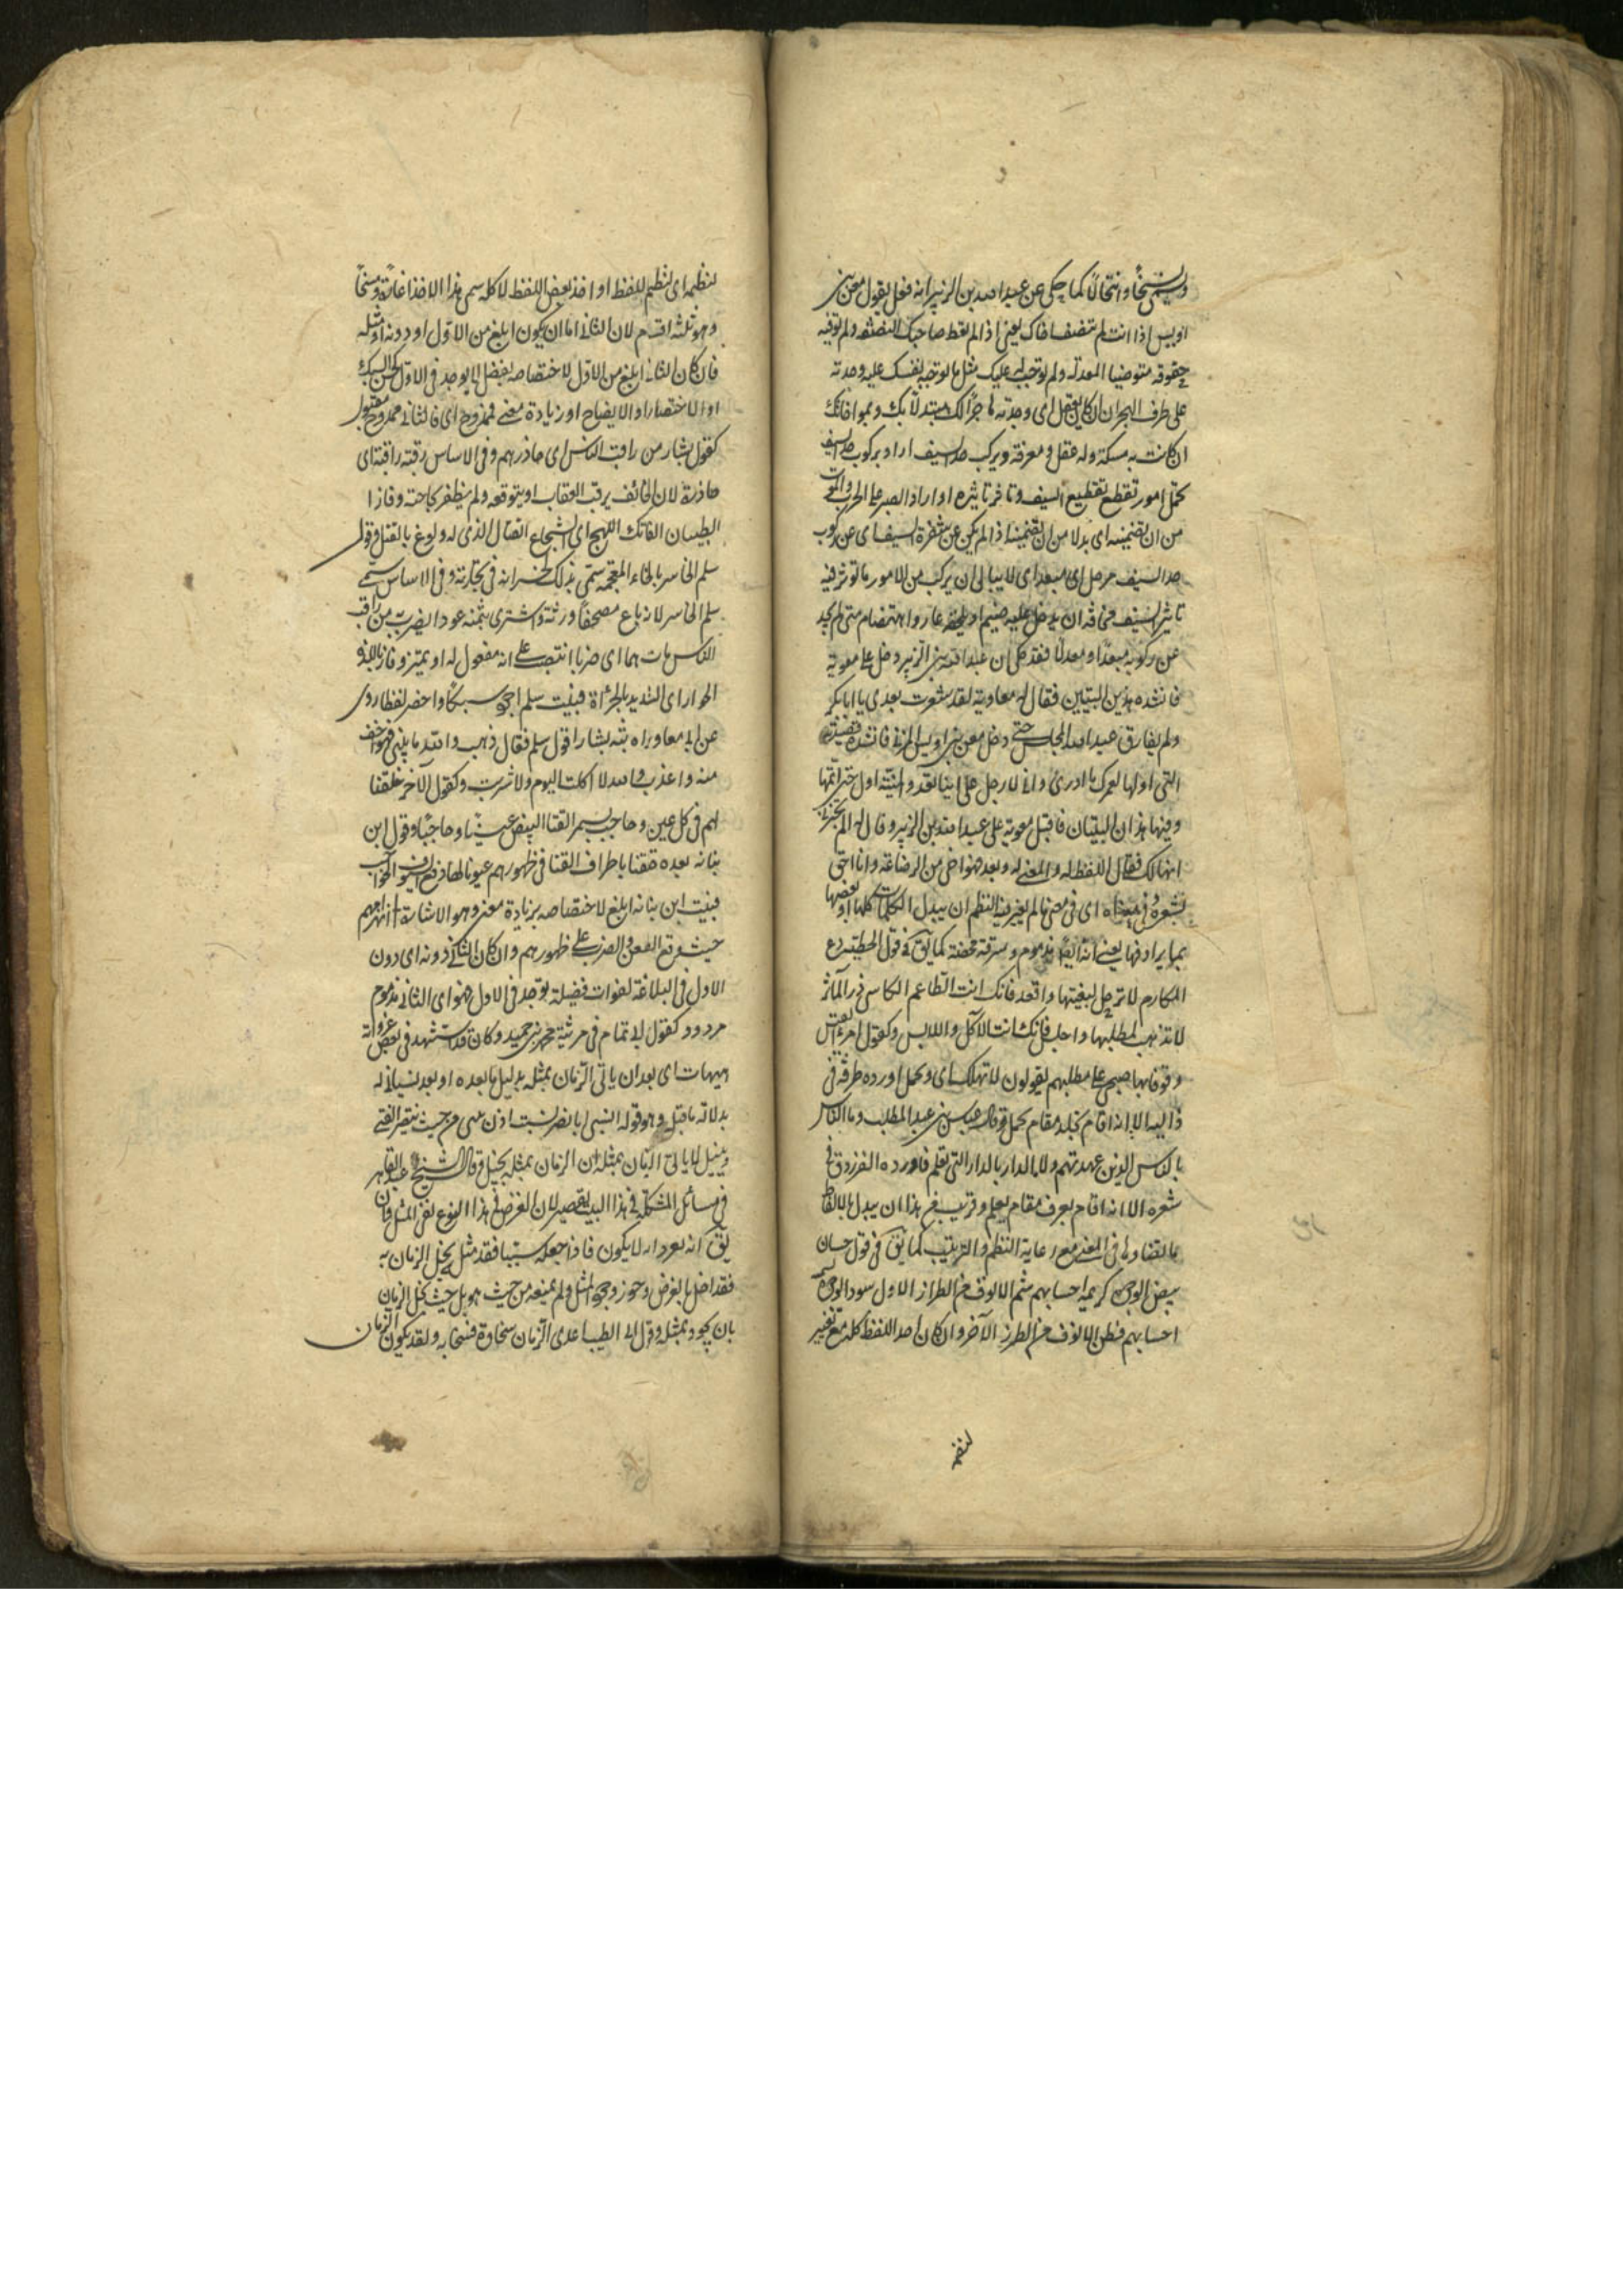 ويسمى نسخا وانتحالا كما حكى عن عبد الله بن الزبير انه فعل بقول معن بن
اويس اذا انت لم تنصف اخاك يعنى اذا لم تعط صاحبك النصفة ولم توفه
حقوقه متوخيا المعدلة ولم توجب له عليك مثل ما توجبه لنفسك عليه وجدته
على طرف الهجران ان كان يعقل اى وجدته هاجرا لك مبتدلا بك وبمواخاتك
ان كانت به مسكة وله عقل ومعرفة ويركب حد السيف اراد بركوب حد السيف
تحمل امور تقطع تقطيع السيف وتاثر تاثيره او اراد الصبر على الحرب والموت
من ان تضيمه اى بدلا من ان تضيمه اذا لم يكن عن شفرة السيف اى عن ركوب
حد السيف مزحل اى مبعد اى لا يبالى ان يركب من الامور ما توثر فيه
تاثير السيف مخافة ان يدخل عليه ضيم او يلحقه عار واهتضام متى لم يجد
عن ركوبه مبعدا ومعدلا فقد حكى ان عبد الله بن الزبير دخل على معوية
فانشده هذين البيتين فقال له معاوية لقد شعرت بعدى يا ابا بكر
ولم يفارق عبد الله المجلس حتى دخل معن بن اويس المزنى فانشده قصيدته
التى اولها لعمرك ما ادرى وانى لاوجل على اينا تغدو المنية اول حتى اتمها
وفيها هذان البيتان فاقبل معوية على عبد الله بن الزبير وقال له الم تخبرنى
انهما لك فقال اللفظ له والمعنى له وبعد فهو اخى من الرضاعة وانا احق
بشعره وفى معناه اى فى معنى ما لم يغير فيه النظم ان يبدل الكلمات كلها او بعضها
بما يرادفها يعنى انه ايضا مذموم وسرقة محضة كما يق فى قول الحطيئة دع
المكارم لا ترحل لبغيتها واقعد فانك انت الطاعم الكاسى ذر المآثر
لا تذهب لمطلبها واجلس فانك انت الآكل واللابس وكقول امرء القيس
وقوفا بها صحبى على مطيهم يقولون لا تهلك اسى وتجمل اورده طرفة فى
داليته الا انه اقام تجلد مقام تجمل وقال عباس بن عبد المطلب وما الناس
بالناس الذين عهدتهم ولا الدار بالدار التى تعلم فاورده الفرزدق فى
شعره الا انه اقام تعرف مقام تعلم وقريب من هذا ان يبدل الالفاظ
ما يضادها فى المعنى مع رعاية النظم والترتيب كما يق فى قول حسان
بيض الوجوه كريمة احسابهم شم الانوف من الطراز الاول سود الوجوه لئيمة
احسابهم فطس الانوف من الطراز الآخر وان كان اخذ اللفظ كله مع تغيير
لنظمه
لنظمه اى لنظم اللفظ او اخذ بعض اللفظ لا كله سمى هذا الاخذ اغارة ومسخا
وهو ثلثة اقسام لان الثانى اما ان يكون ابلغ من الاول او دونه او مثله
فان كان الثانى ابلغ من الاول لاختصاصه بفضل لا يوجد فى الاول كحسن السبك
او الاختصار او الايضاح او زيادة معنى فممدوح اى فالثانى ممدوح مقبول
كقول بشار من راقب الناس اى حاذرهم وفى الاساس رقبه راقبه اى
حاذره لان الخائف يرقب العقاب او يتوقعه ولم يظفر بحاجته وفاز ا
الطيبات الفاتك اللهج اى الشجاع القتال الذى له ولوغ بالقتل وقول
سلم الخاسر بالخاء المعجمة سمى بذلك لخسرانه فى تجارته وفى الاساس سمى
سلم الخاسر لانه باع مصحفا ورثة واشترى بثمنه عودا يضرب من راقب
الناس مات هما اى حزنا انتصب على انه مفعول له او تميز وفاز باللذة
الجسور اى الشديد الجرأة فبيت سلم اجود سبكا واخصر لفظا روى
عن ابى معاذ راوية بشار انشد بشارا قول سلم فقال ذهب والله ببيتى فهو اخف
منه واعذب والله لا اكلت اليوم ولا شربت وكقول الآخر خلقنا
لهم فى كل عين وحاجب بسمر القنا البيض عينا وحاجبا وقول ابن
نباته بعده خلقنا باطراف القنا فى ظهورهم عيونا لها وقع السيوف حواجب
فبيت ابن نباته ابلغ لاختصاصه بزيادة معنى وهو الاشارة الى انهزامهم
حيث وقع الطعن والضرب على ظهورهم وان كان الثانى دونه اى دون
الاول فى البلاغة لفوات فضيلة توجد فى الاول فهو اى الثانى مذموم
مردود كقول ابى تمام فى مرثية محمد بن حميد وكان قد استشهد فى بعض غزواته
هيهات اى بعد ان ياتى الزمان بمثله بدليل ما بعده او بعد نسيانى له
بدلالة ما قبله وهو قوله انسى ابا نصر نسيت اذن يدى من حيث ينتصر الفتى
وينيل لا ياتى الزمان بمثله ان الزمان بمثله لبخيل وقال الشيخ عبد القاهر
فى مسائل المشكلة فى هذا البيت تقصير لان الغرض فى هذا النوع نفى المثل فان
يق انه يعود انه لا يكون فاذا جعله سببا فقد مثل بخل الزمان به
فقد اخل بالغرض وجوز وجود المثل ولم يمنعه من حيث هو بل من حيث بخل الزمان
بان يجود بمثله وقول ابى الطيب اعدى الزمان سخاؤه فسخا به ولقد يكون به الزمان